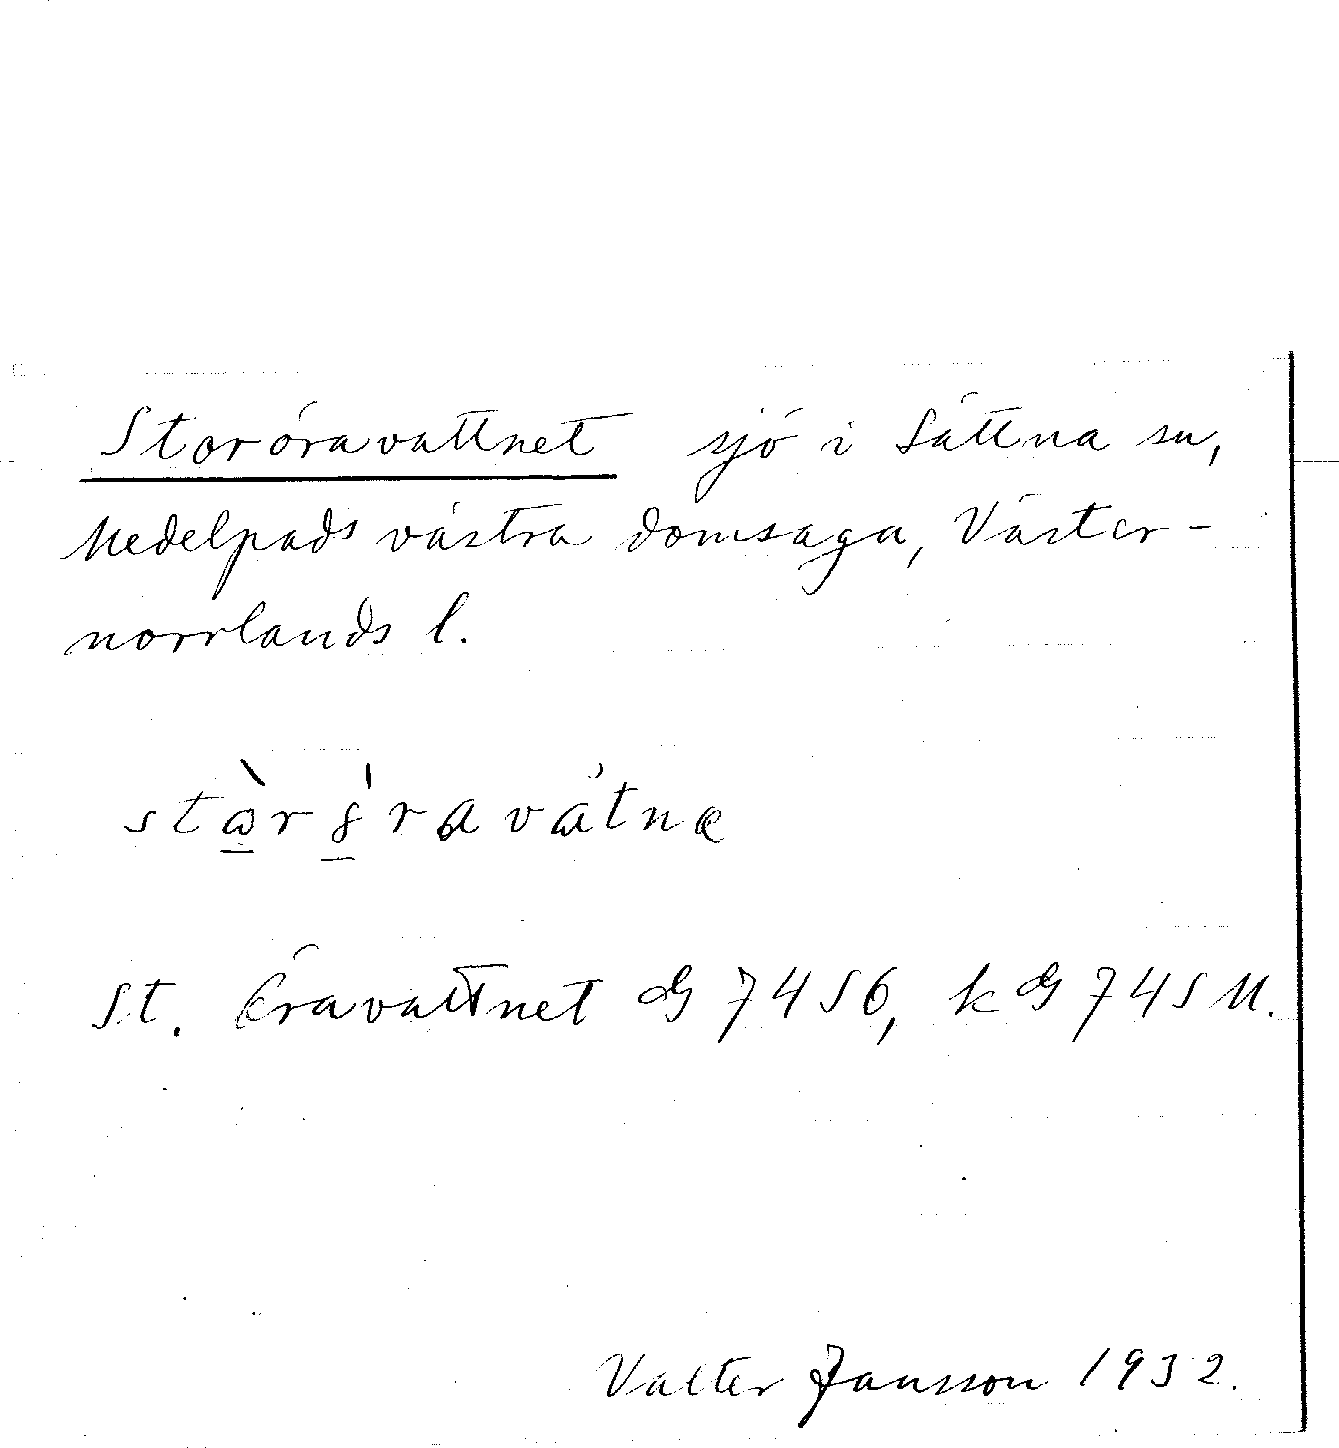 Storöravattnet sjö i Sättna sn,
Medelpads västra domsaga, Väster-
norrlands l.
St. Öravattnet G 7456, k G 745 M.
Valter Jansson 1932.